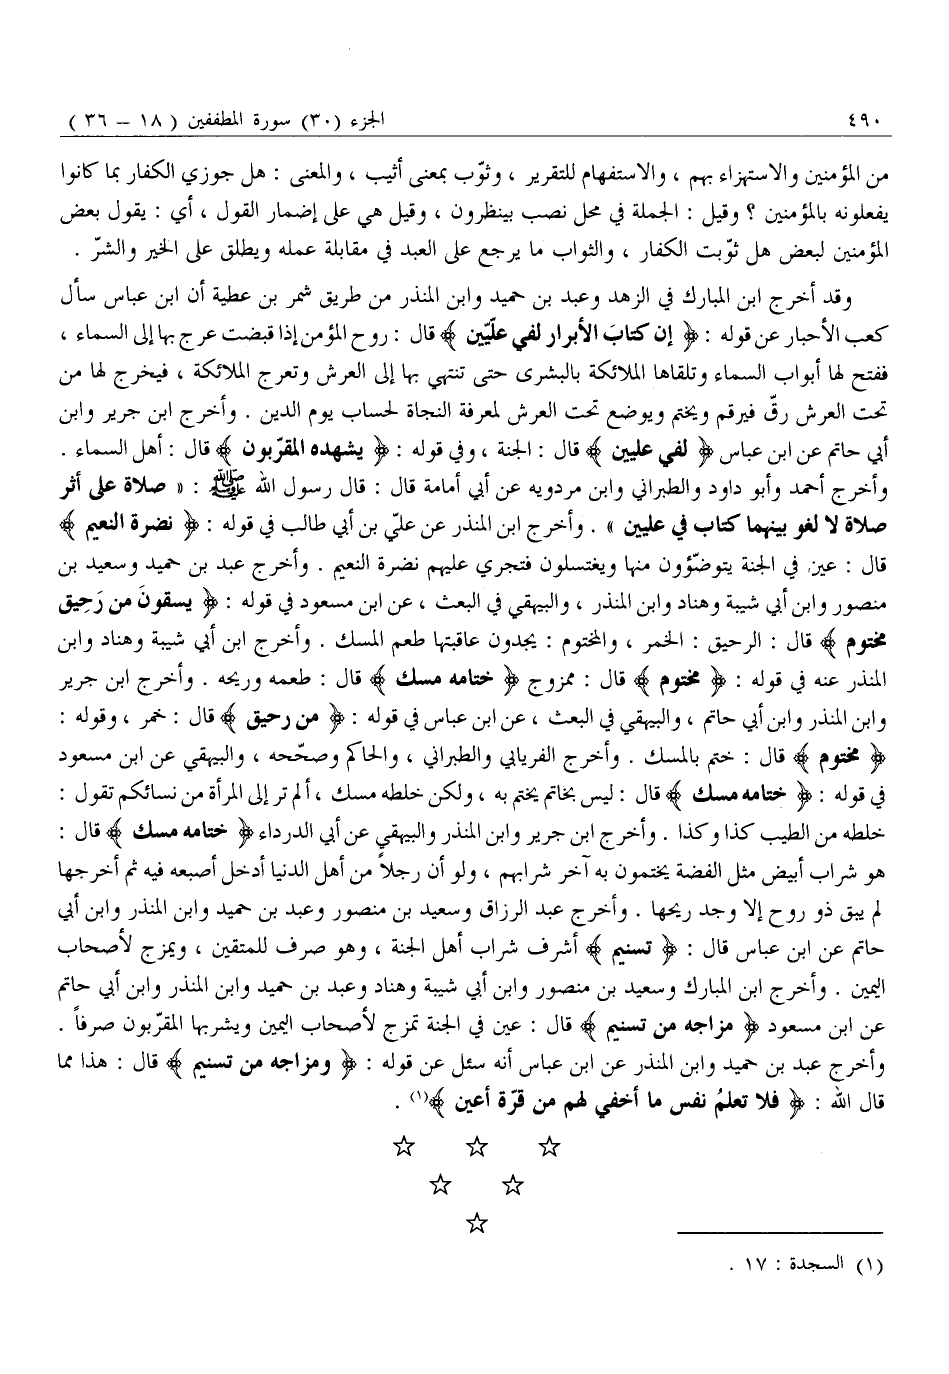 ٤٩٠ الجزء (٣٠) سورة المطففين ( ١٨ – ٣٦ )
من المؤمنين والاستهزاء بهم ، والاستفهام للتقرير ، وثوّب بمعنى أثيب ، والمعنى : هل جوزي الكفار بما كانوا
يفعلونه بالمؤمنين ؟ وقيل : الجملة في محل نصب بينظرون ، وقيل هي على إضمار القول ، أي : يقول بعض
المؤمنين لبعض هل ثوّبت الكفار ، والثواب ما يرجع على العبد في مقابلة عمله ويطلق على الخير والشرّ .
وقد أخرج ابن المبارك في الزهد وعبد بن حميد وابن المنذر من طريق شمر بن عطية أن ابن عباس سأل
كعب الأحبار عن قوله : ﴿ إن كتابَ الأبرار لفي علّيّين ﴾ قال : روح المؤمن إذا قبضت عرج بها إلى السماء ،
ففتح لها أبواب السماء وتلقاها الملائكة بالبشرى حتى تنتهي بها إلى العرش وتعرج الملائكة ، فيخرج لها من
تحت العرش رقّ فيرقم ويختم ويوضع تحت العرش لمعرفة النجاة لحساب يوم الدين . وأخرج ابن جرير وابن
أبي حاتم عن ابن عباس ﴿ لفي عليين ﴾ قال : الجنة ، وفي قوله : ﴿ يشهده المقرّبون ﴾ قال : أهل السماء .
وأخرج أحمد وأبو داود والطبراني وابن مردويه عن أبي أمامة قال : قال رسول الله ﷺ : « صلاة على أثر
صلاة لا لغو بينهما كتاب في عليين » . وأخرج ابن المنذر عن عليّ بن أبي طالب في قوله : ﴿ نضرة النعيم ﴾
قال : عين في الجنة يتوضّؤون منها ويغتسلون فتجري عليهم نضرة النعيم . وأخرج عبد بن حميد وسعيد بن
منصور وابن أبي شيبة وهناد وابن المنذر ، والبيهقي في البعث ، عن ابن مسعود في قوله : ﴿ يسقونَ من رَحِيق
مختوم ﴾ قال : الرحيق : الخمر ، والمختوم : يجدون عاقبتها طعم المسك . وأخرج ابن أبي شيبة وهناد وابن
المنذر عنه في قوله : ﴿ مختوم ﴾ قال : ممزوج ﴿ ختامه مسك ﴾ قال : طعمه وريحه . وأخرج ابن جرير
وابن المنذر وابن أبي حاتم ، والبيهقي في البعث ، عن ابن عباس في قوله : ﴿ من رحيق ﴾ قال : خمر ، وقوله :
﴿ مختوم ﴾ قال : ختم بالمسك . وأخرج الفريابي والطبراني ، والحاكم وصحّحه ، والبيهقي عن ابن مسعود
في قوله : ﴿ ختامه مسك ﴾ قال : ليس بخاتم يختم به ، ولكن خلطه مسك ، ألم تر إلى المرأة من نسائكم تقول :
خلطه من الطيب كذا وكذا . وأخرج ابن جرير وابن المنذر والبيهقي عن أبي الدرداء ﴿ ختامه مسك ﴾ قال :
هو شراب أبيض مثل الفضة يختمون به آخر شرابهم ، ولو أن رجلاً من أهل الدنيا أدخل أصبعه فيه ثم أخرجها
لم يبق ذو روح إلا وجد ريحها . وأخرج عبد الرزاق وسعيد بن منصور وعبد بن حميد وابن المنذر وابن أبي
حاتم عن ابن عباس قال : ﴿ تسنيم ﴾ أشرف شراب أهل الجنة ، وهو صرف للمتقين ، ويمزج لأصحاب
اليمين . وأخرج ابن المبارك وسعيد بن منصور وابن أبي شيبة وهناد وعبد بن حميد وابن المنذر وابن أبي حاتم
عن ابن مسعود ﴿ مزاجه من تسنيم ﴾ قال : عين في الجنة تمزج لأصحاب اليمين ويشربها المقرّبون صرفاً .
وأخرج عبد بن حميد وابن المنذر عن ابن عباس أنه سئل عن قوله : ﴿ ومزاجه من تسنيم ﴾ قال : هذا مما
قال الله : ﴿ فلا تعلمُ نفس ما أخفي لهم من قرّة أعين ﴾(١) .
☆ ☆ ☆
☆ ☆
☆
(١) السجدة : ١٧ .